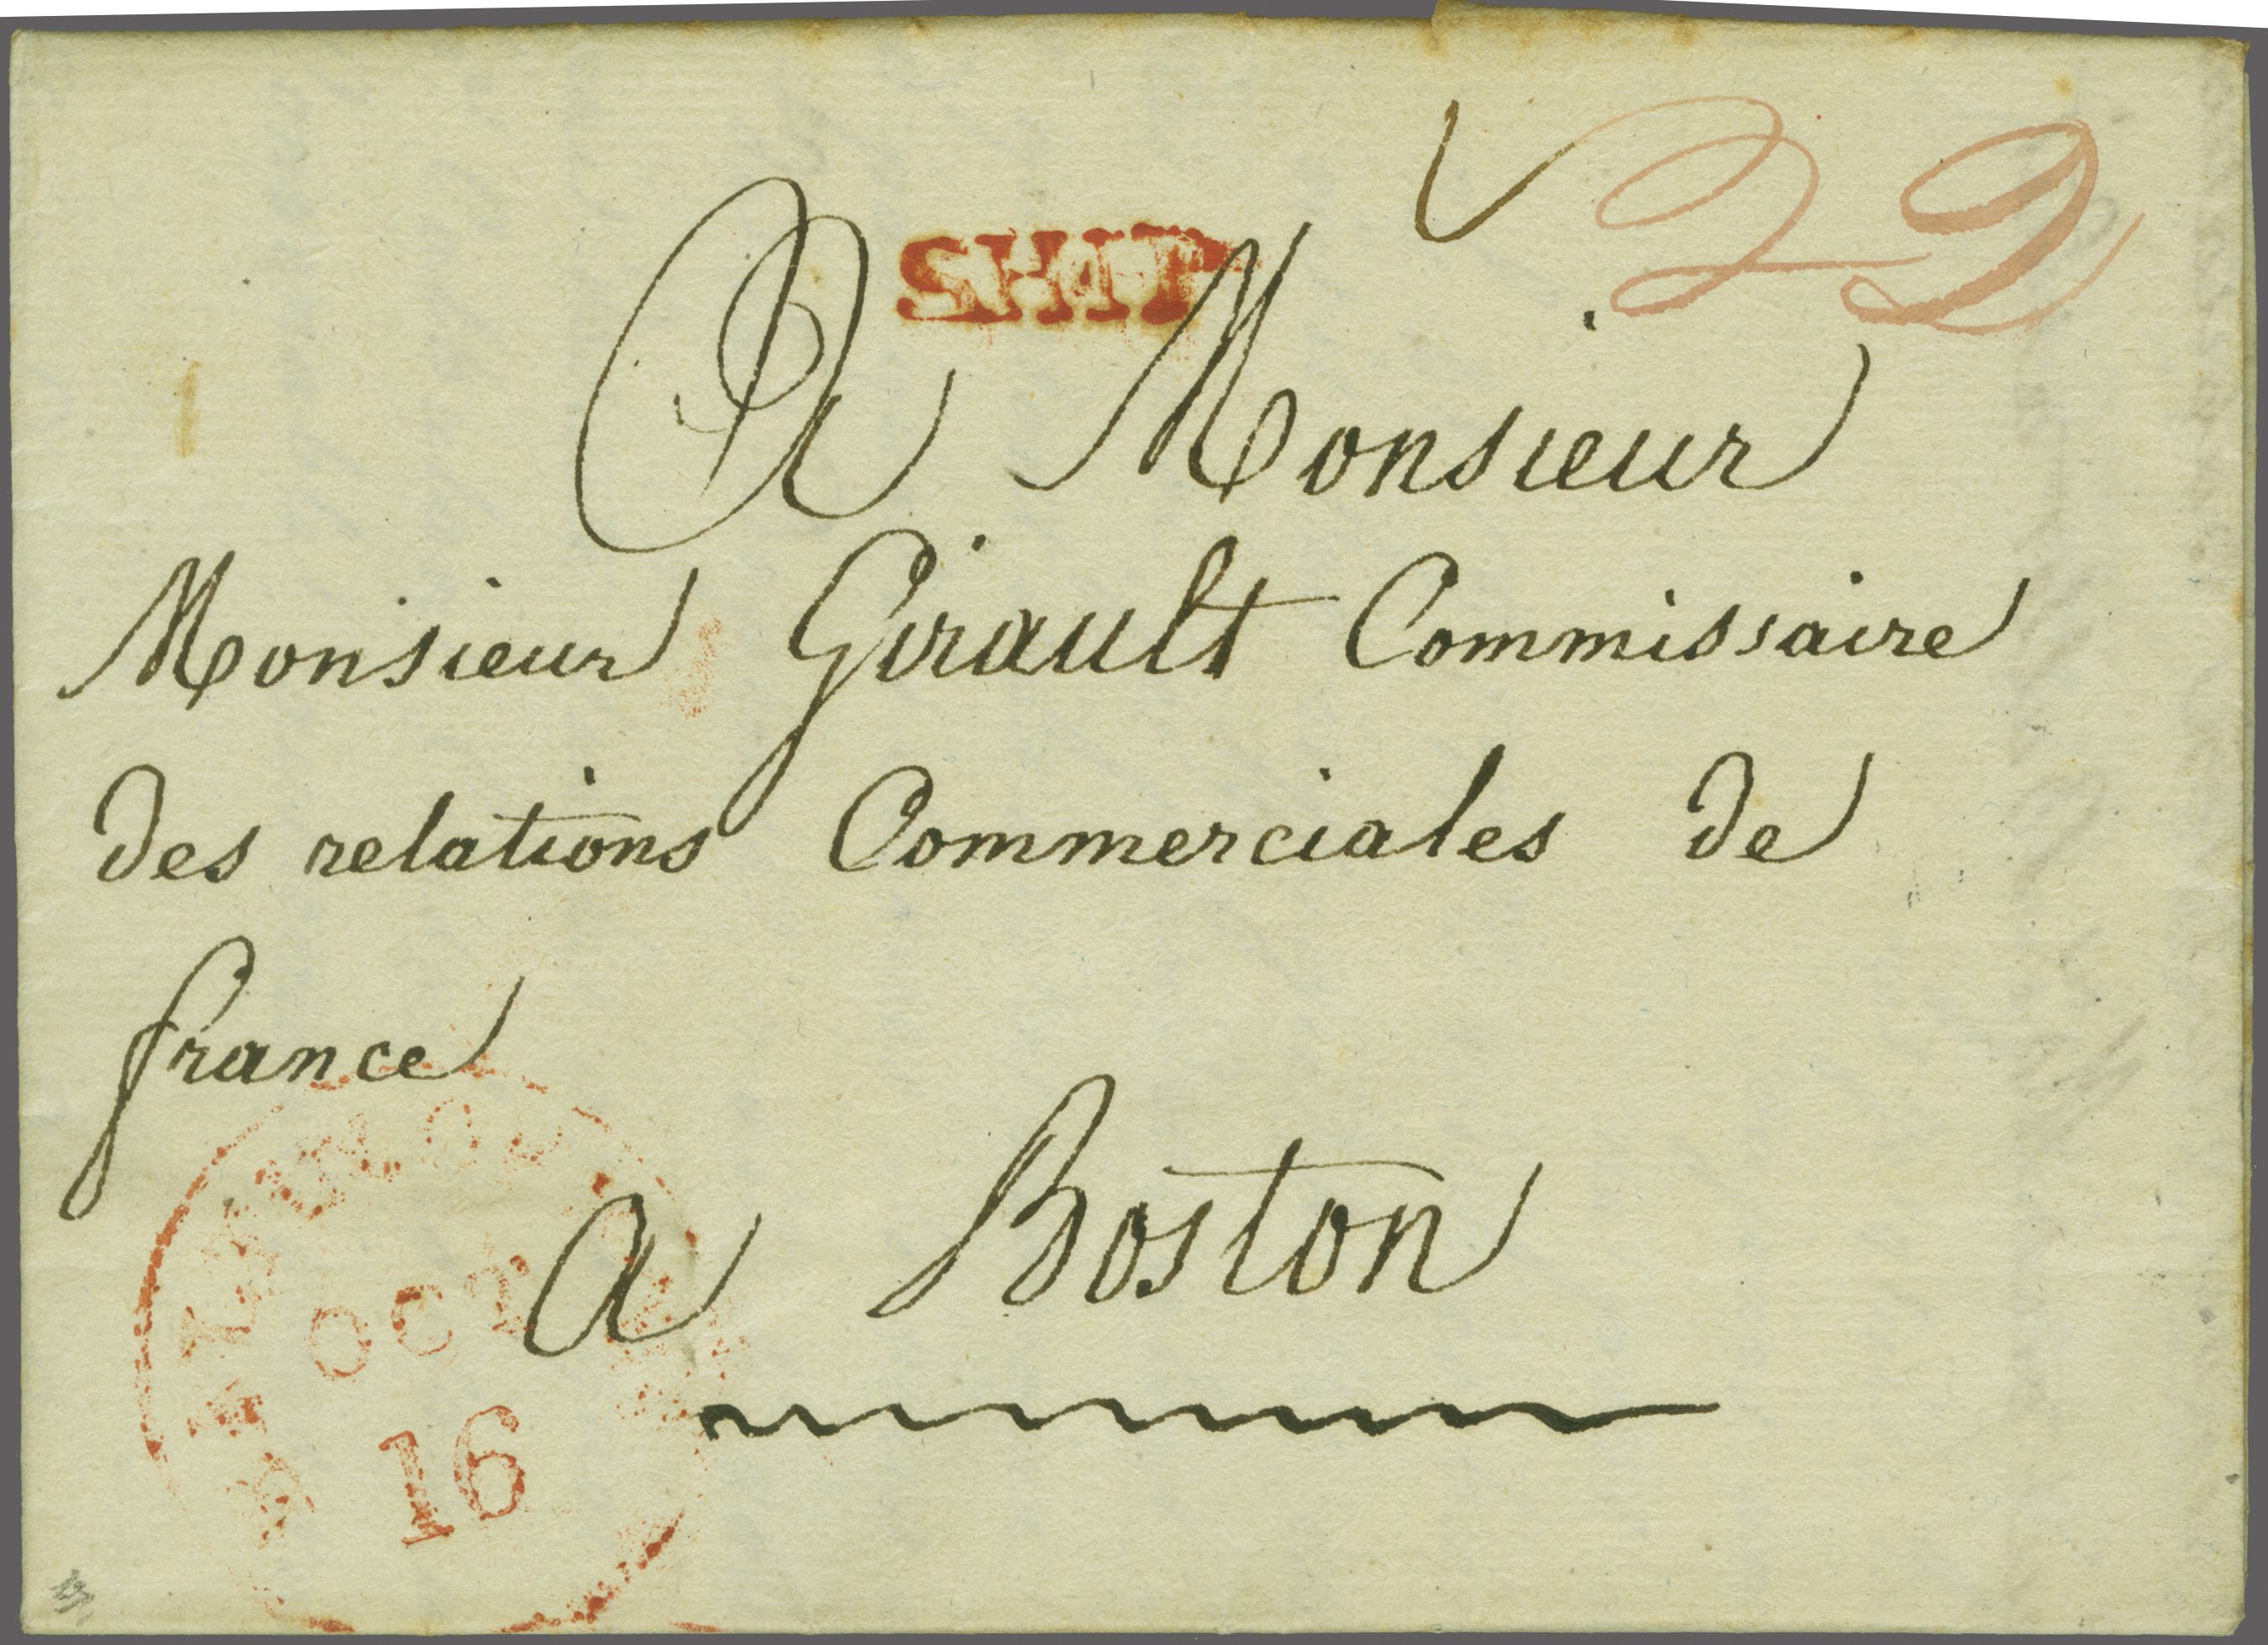 22
SHIP
A Monsieur
Monsieur Girault Commissaire
des relations Commerciales de
france
a Boston
OCT
16